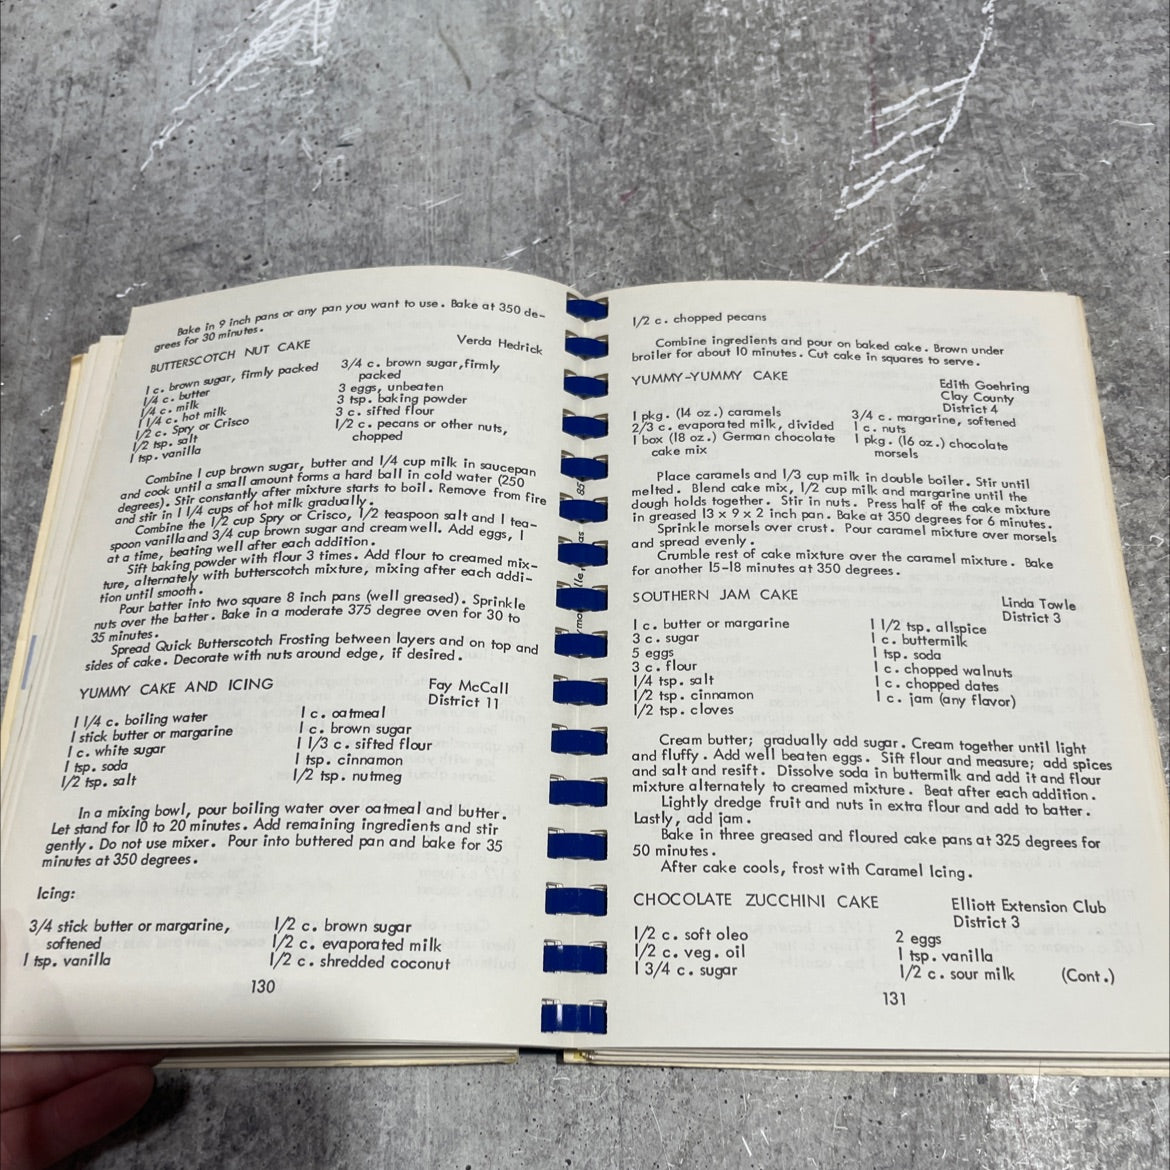 Bake in 9 inch pans or any pan you want to use. Bake at 350 de-
grees for 30 minutes.
BUTTERSCOTCH NUT CAKE
Verda Hedrick
1 c. brown sugar, firmly packed
1/4 c. butter
1/4 c. milk
1 1/4 c. hot milk
1/2 c. Spry or Crisco
1/2 tsp. salt
1 tsp. vanilla
3/4 c. brown sugar,firmly
packed
3 eggs, unbeaten
3 tsp. baking powder
3 c. sifted flour
1/2 c. pecans or other nuts,
chopped
Combine 1 cup brown sugar, butter and 1/4 cup milk in saucepan
and cook until a small amount forms a hard ball in cold water (250
degrees). Stir constantly after mixture starts to boil. Remove from fire
and stir in 1 1/4 cups of hot milk gradually.
Combine the 1/2 cup Spry or Crisco, 1/2 teaspoon salt and 1 tea-
spoon vanilla and 3/4 cup brown sugar and cream well. Add eggs, 1
at a time, beating well after each addition.
Sift baking powder with flour 3 times. Add flour to creamed mix-
ture, alternately with butterscotch mixture, mixing after each addi-
tion until smooth.
Pour batter into two square 8 inch pans (well greased). Sprinkle
nuts over the batter. Bake in a moderate 375 degree oven for 30 to
35 minutes.
Spread Quick Butterscotch Frosting between layers and on top and
sides of cake. Decorate with nuts around edge, if desired.
YUMMY CAKE AND ICING
Fay McCall
District 11
1 1/4 c. boiling water
1 stick butter or margarine
1 c. white sugar
1 tsp. soda
1/2 tsp. salt
1 c. oatmeal
1 c. brown sugar
1 1/3 c. sifted flour
1 tsp. cinnamon
1/2 tsp. nutmeg
In a mixing bowl, pour boiling water over oatmeal and butter.
Let stand for 10 to 20 minutes. Add remaining ingredients and stir
gently. Do not use mixer. Pour into buttered pan and bake for 35
minutes at 350 degrees.
Icing:
3/4 stick butter or margarine,
softened
1 tsp. vanilla
1/2 c. brown sugar
1/2 c. evaporated milk
1/2 c. shredded coconut
130
1/2 c. chopped pecans
Combine ingredients and pour on baked cake. Brown under
broiler for about 10 minutes. Cut cake in squares to serve.
YUMMY-YUMMY CAKE
Edith Goehring
Clay County
District 4
1 pkg. (14 oz.) caramels
2/3 c. evaporated milk, divided
1 box (18 oz.) German chocolate
cake mix
3/4 c. margarine, softened
1 c. nuts
1 pkg. (16 oz.) chocolate
morsels
Place caramels and 1/3 cup milk in double boiler. Stir until
melted. Blend cake mix, 1/2 cup milk and margarine until the
dough holds together. Stir in nuts. Press half of the cake mixture
in greased 13 x 9 x 2 inch pan. Bake at 350 degrees for 6 minutes.
Sprinkle morsels over crust. Pour caramel mixture over morsels
and spread evenly.
Crumble rest of cake mixture over the caramel mixture. Bake
for another 15-18 minutes at 350 degrees.
SOUTHERN JAM CAKE
Linda Towle
District 3
1 c. butter or margarine
3 c. sugar
5 eggs
3 c. flour
1/4 tsp. salt
1/2 tsp. cinnamon
1/2 tsp. cloves
1 1/2 tsp. allspice
1 c. buttermilk
1 tsp. soda
1 c. chopped walnuts
1 c. chopped dates
1 c. jam (any flavor)
Cream butter; gradually add sugar. Cream together until light
and fluffy. Add well beaten eggs. Sift flour and measure; add spices
and salt and resift. Dissolve soda in buttermilk and add it and flour
mixture alternately to creamed mixture. Beat after each addition.
Lightly dredge fruit and nuts in extra flour and add to batter.
Lastly, add jam.
Bake in three greased and floured cake pans at 325 degrees for
50 minutes.
After cake cools, frost with Caramel Icing.
CHOCOLATE ZUCCHINI CAKE
Elliott Extension Club
District 3
1/2 c. soft oleo
1/2 c. veg. oil
1 3/4 c. sugar
2 eggs
1 tsp. vanilla
1/2 c. sour milk
(Cont.)
131